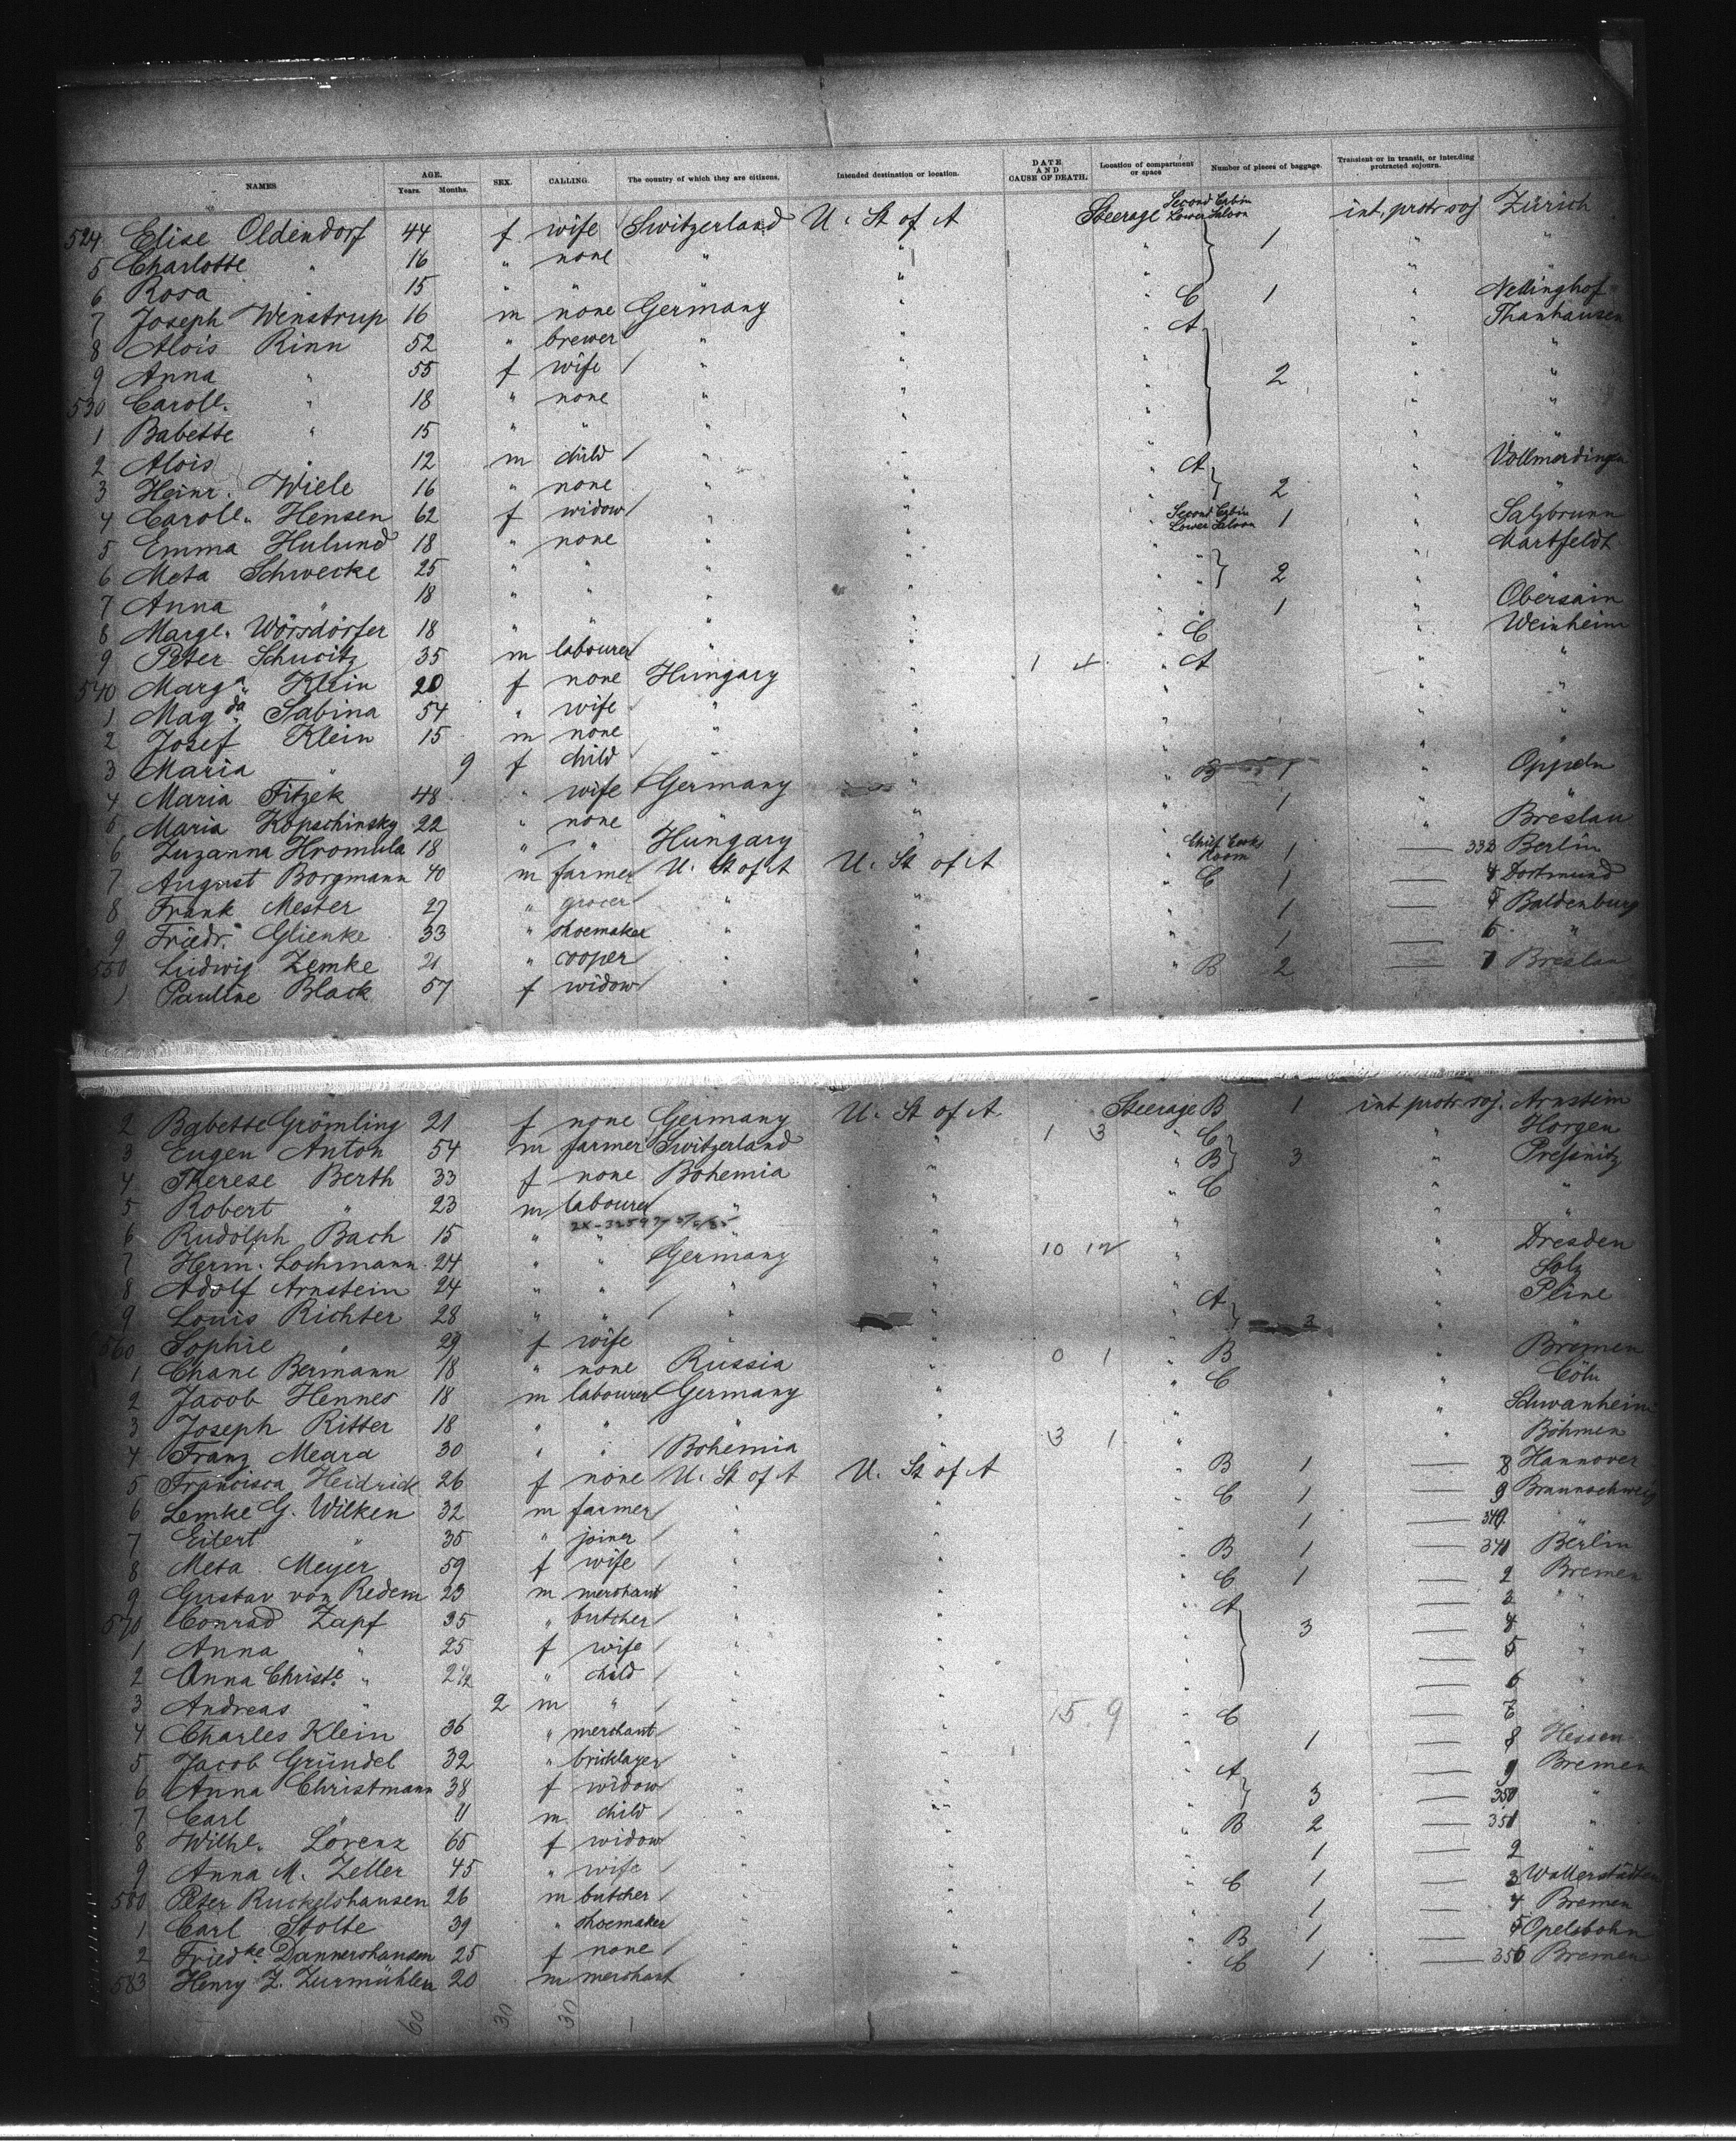 NAMES AGE. Years. Months. SEX. CALLING. The country of which they are citizens. Intended destination or location. DATE AND CAUSE OF DEATH. Location of compartment or space Number of pieces of baggage. Transient or in transit, or intending protracted sojourn.
524 Elise Oldendorf 44 f wife Switzerland U. St of A Steerage Second Cabin Lower Saloon 1 int. protr soj Zürich
5 Charlotte " 16 " none " " " " "
6 Rosa " 15 " " " " "
7 Joseph Wenstrup 16 m none Germany " " C 1 " Nellinghof
8 Alois Rinn 52 " brewer " " " A " Thanhausen
9 Anna " 55 f wife " " " 2 " "
530 Caroll. " 18 " none " " " " "
1 Babette " 15 " " " " " " "
2 Alois " 12 m child " " " " "
3 Heinr. Wiele 16 " none " " " A 2 " Vollmerdingen
4 Caroll. Hensen 62 f widow " " " "
5 Emma Hulund 18 " none " " Second Cabin Lower Saloon 1 " Salzbrunn
6 Meta Schwecke 25 " " " " " 2 " Martfeldt
7 Anna " 18 " " " " " "
8 Marge. Wörsdörfer 18 " " " " " 1 " Obersain
9 Peter Schucitz 35 m labourer " C " Weinheim
540 Marga. Klein 20 f none Hungary " 1 4 " A " "
1 Magda. Sabina 54 " wife " " " " "
2 Josef Klein 15 m none " " " " "
3 Maria " 9 f child " " " "
4 Maria Fitzek 48 " wife Germany " B 1 " Oppeln
5 Maria Kopschinsky 22 " none " " 1 " "
6 Zuzanna Hromula 18 " " Hungary " " Breslau
7 August Borgmann 40 m farmer U. St of A U. St of A Chief Cooks Room 1 — 333 Berlin
8 Frank Mester 27 " grocer " " C 1 — 4 Dortmund
9 Friedr. Glienke 33 " shoemaker " " 1 — 5 Baldenburg
550 Ludwig Zemke 21 " cooper " " 1 — 6 "
1 Pauline Black 57 f widow " " B 2 — 7 Breslau
2 Babette Grömling 21 f none Germany U. St of A Steerage B 1 int protr soj. Arnstein
3 Eugen Anton 54 m farmer Switzerland " 1 3 " C " Horgen
4 Therese Berth 33 f none Bohemia " " B 3 " Pressnitz
5 Robert " 23 m labourer " " C " "
6 Rudolph Bach 15 " " " " " "
7 Herm. Lochmann 24 " " Germany " 10 12 " " Dresden
8 Adolf Arnstein 24 " " " " " " Solz
9 Louis Richter 28 " " " " A 3 " Pline
560 Sophie " 29 f wife " "
1 Chane Bermann 18 " none Russia " 0 1 " B " Bremen
2 Jacob Hennes 18 m labourer Germany " " C " Cöln
3 Joseph Ritter 18 " " " " " Schwanheim
4 Franz Meara 30 " " Bohemia 3 1 " " Böhmen
5 Francisca Heidrich 26 f none U. St of A U. St of A " B 1 — 8 Hannover
6 Lemke G. Wilken 32 m farmer " " " C 1 — 9 Braunschweig
7 Eilert " 35 " joiner " " " 1 — 340 "
8 Meta Meyer 59 f wife " " " B 1 — 341 Berlin
9 Gustav von Redern 23 m merchant " " " C 1 — 2 Bremen
570 Conrad Zapf 35 " butcher " " " A 3 — 3 "
1 Anna " 25 f wife " " " — 4 "
2 Anna Christe. " 2½ " child " " " — 5
3 Andreas " 2 m " " " — 6 "
4 Charles Klein 36 " merchant " " 15 9 " C — 7 "
5 Jacob Gründel 32 " bricklayer " " " 1 — 8 Hessen
6 Anna Christmann 38 f widow " " " A 3 — 9 Bremen
7 Carl " 11 m child " " " — 350 "
8 Wilhe. Lorenz 65 f widow " " " B 2 — 351 "
9 Anna M. Zeller 45 " wife " " " 1 — 2 "
580 Peter Ruckelshausen 26 m butcher " " " C 1 — 3 Wallerstädten
1 Carl Stolte 39 " shoemaker " " " 1 — 4 Bremen
2 Friedke. Dannershausen 25 f none " " " B 1 — 5 Opelsbohn
583 Henry Z. Zurmühlen 20 m merchant " " " C 1 — 356 Bremen
60 30 30